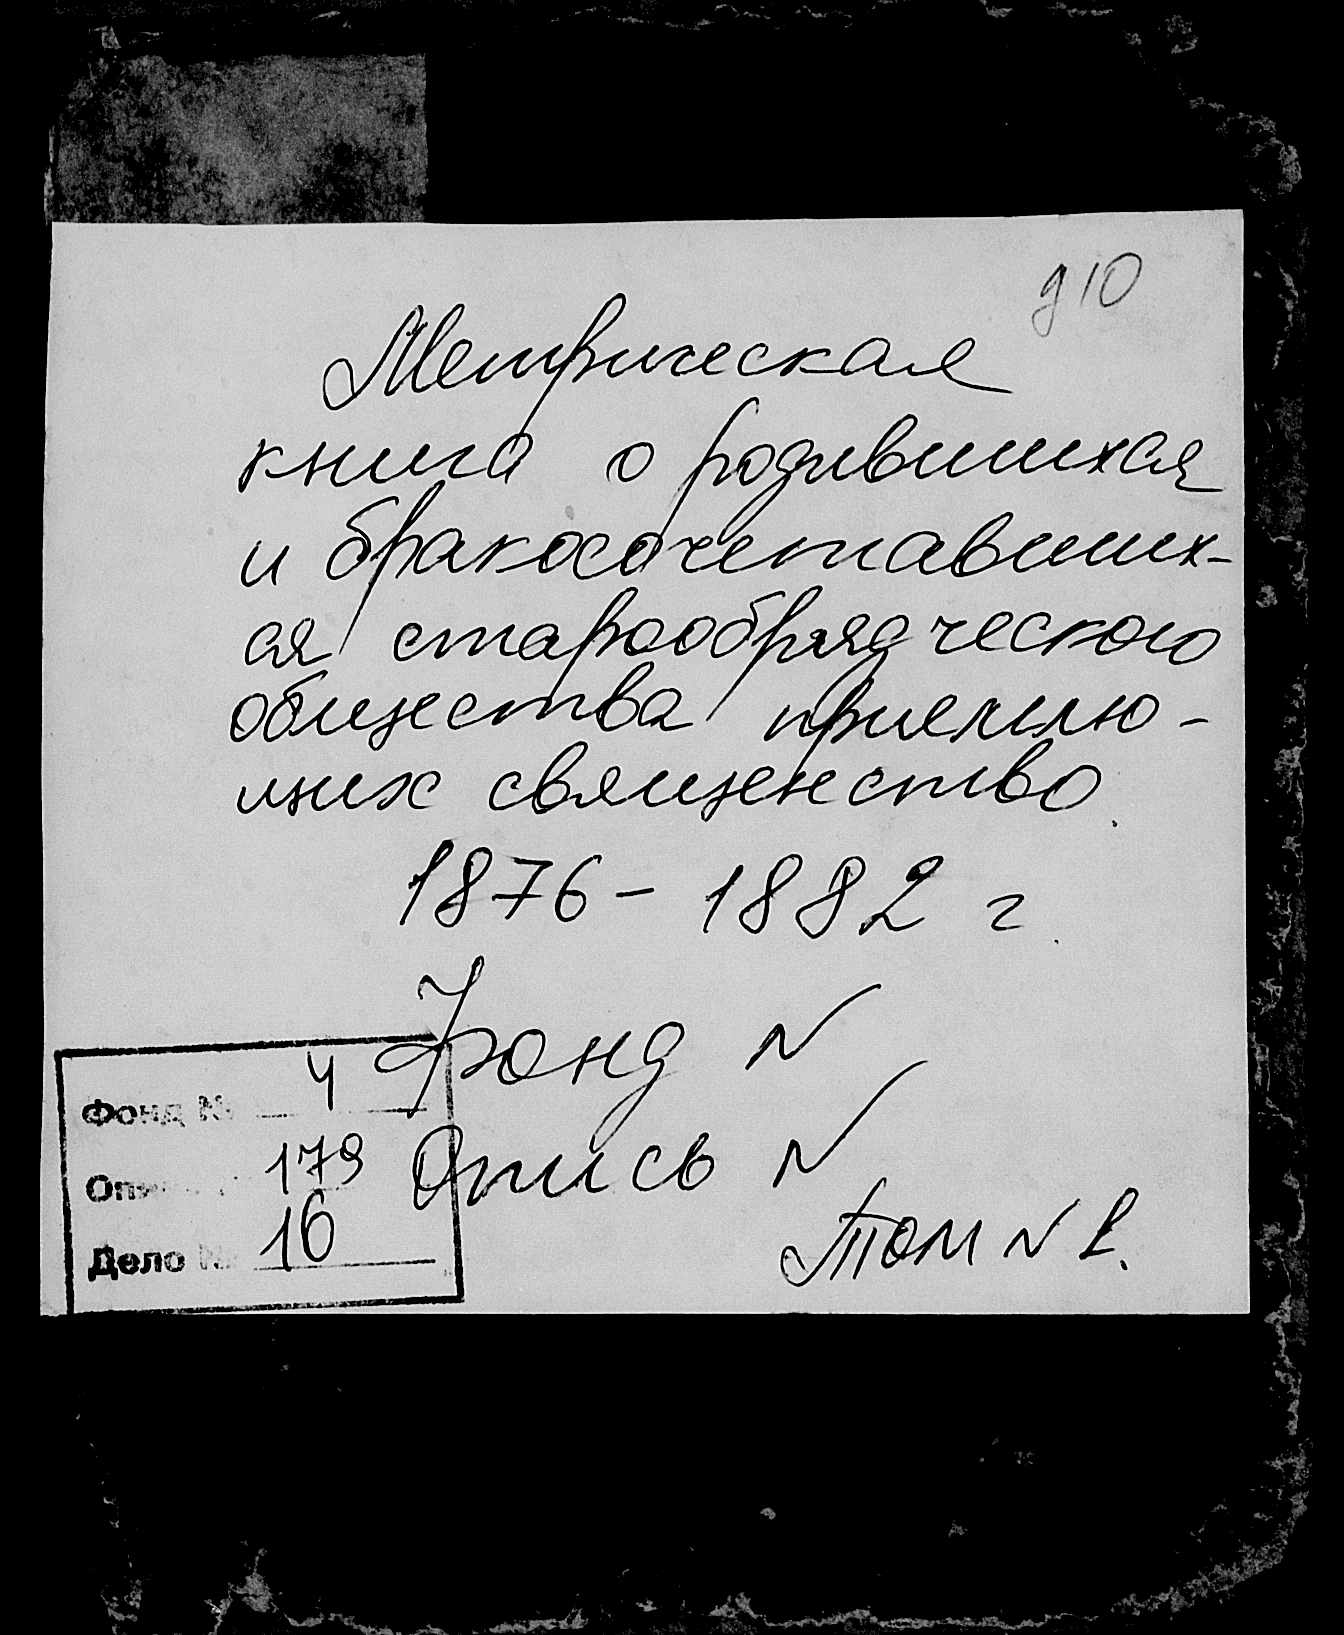 д 10
Метрическая
книга о родившихся
и бракосочетавших-
ся старообрядческого
общества приемлю-
щих священство.
1876 - 1882 г.
Фонд N
Опись N
Том N 2.
Фонд № 4
Опись 179
Дело № 16